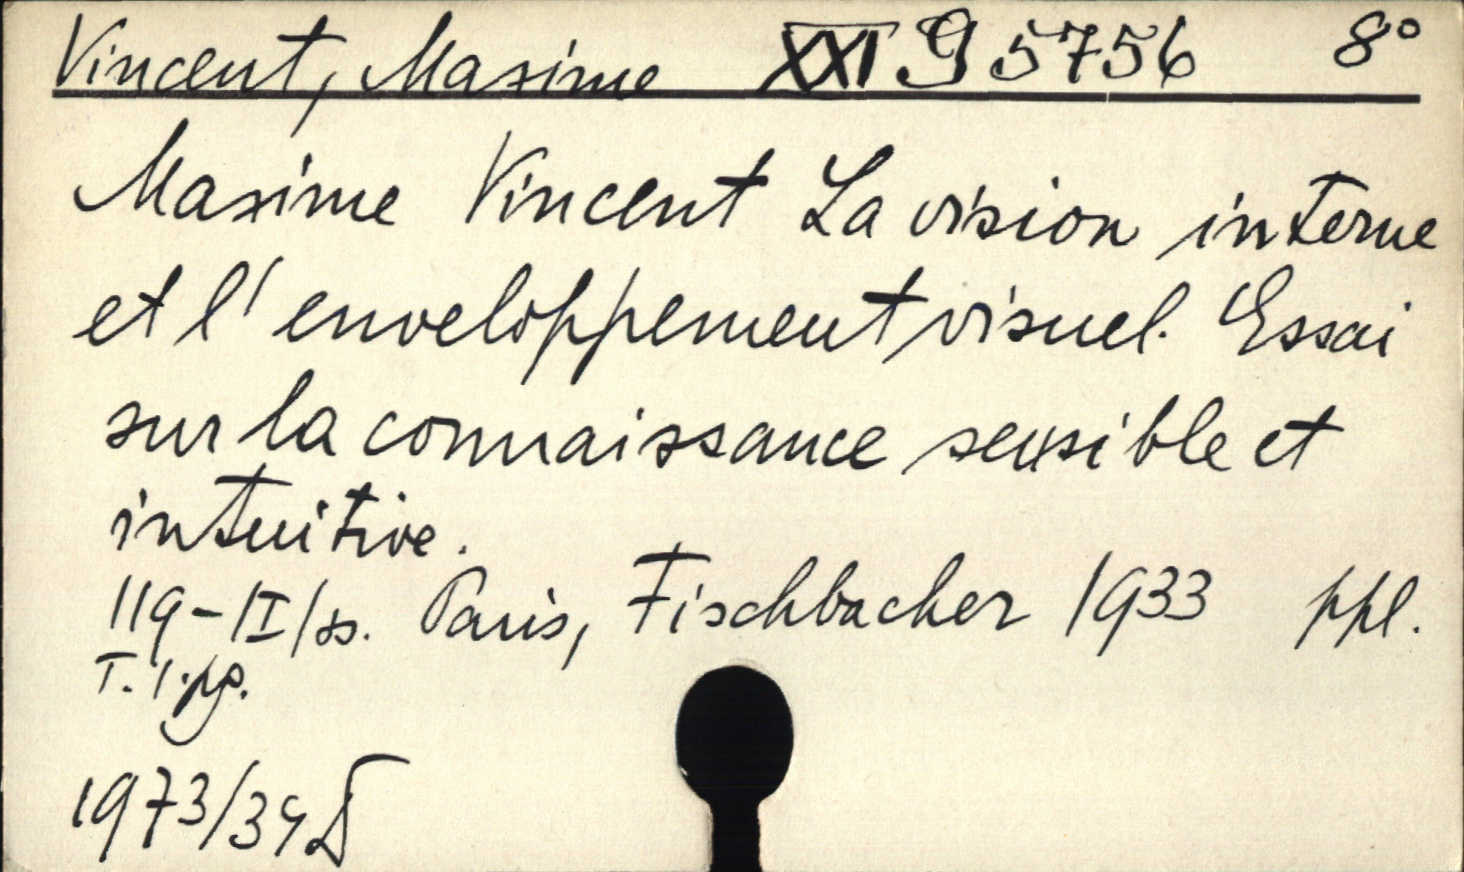 Vincent, Maxime XXI G 5756 8°
Maxime Vincent La vision interne
et l'enveloppement visuel. Essai
sur la connaissance sensible et
intuitive.
119-/I/ss. Paris, Fischbacher 1933 ppl.
T. 1.
1973/34